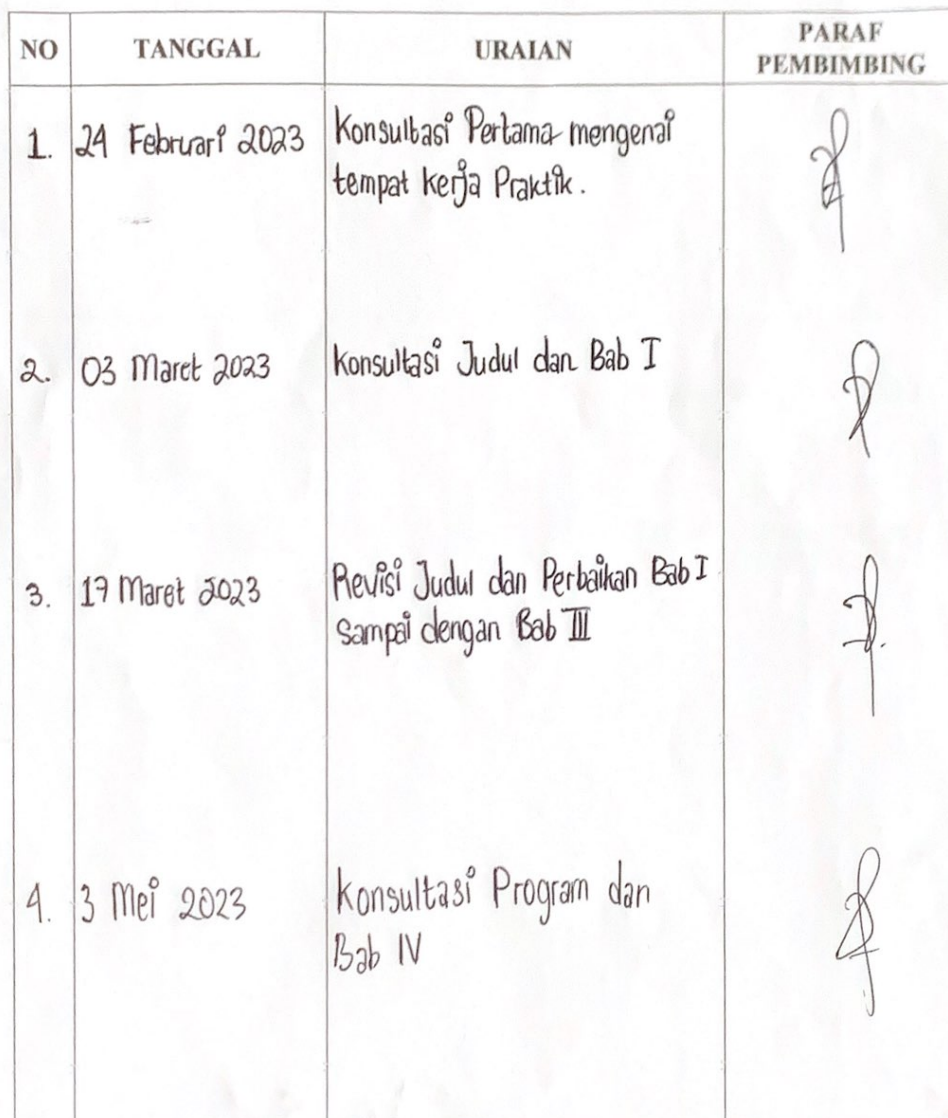 NO TANGGAL URAIAN PARAF PEMBIMBING
1. 24 Februari 2023 Konsultasi Pertama mengenai
tempat kerja Praktik.
2. 03 Maret 2023 Konsultasi Judul dan Bab I
3. 17 Maret 2023 Revisi Judul dan Perbaikan Bab I
Sampai dengan Bab III
4. 3 Mei 2023 Konsultasi Program dan
Bab IV